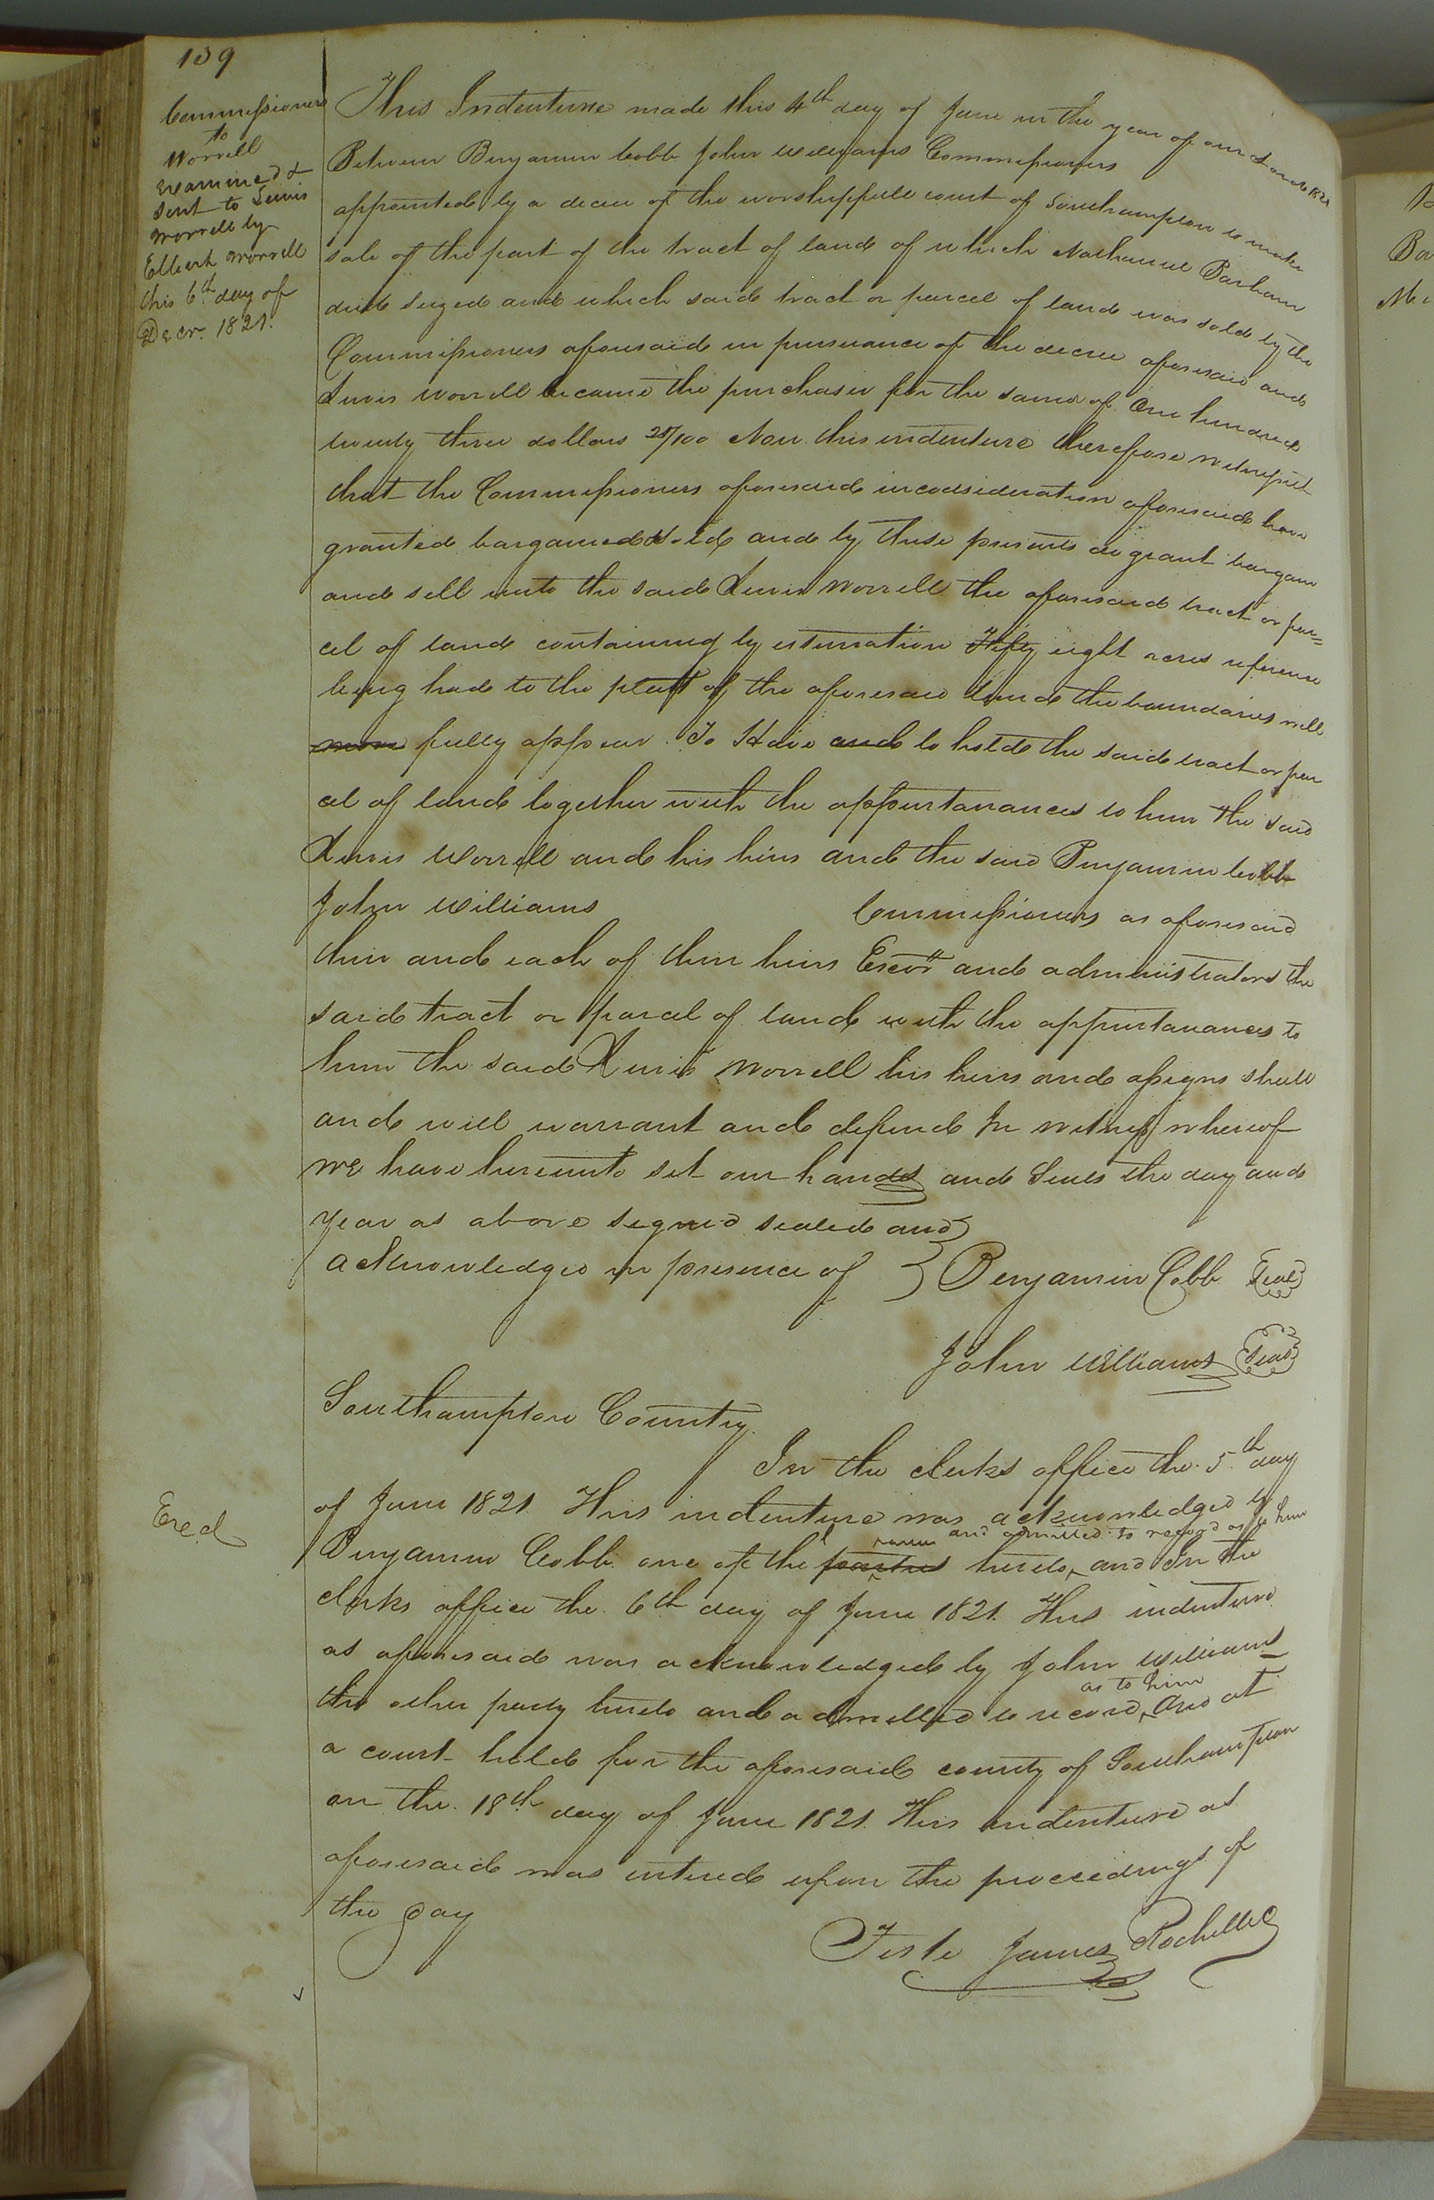 139
Commissioners
to
Worrell
Examined &
sent to Lewis
Worrell by
Elbert Worrell
this 6th day of
Decr. 1821.
This Indenture made this 4th day of June in the year of our Lord 1821
Between Benjamin Cobb John Williams Commissioners
appointed by a decree of the worshipfull court of Southampton to make
sale of the part of the tract of land of which Nathaniel Barham
died seized and which said tract or parcel of land was sold by the
Commissioners aforesaid in pursuance of the decree aforesaid and
Lewis Worrell became the purchaser for the same of One hundred
twenty three dollars /100 Now this indenture therefore witnesseth
that the Commissioners aforesaid in consideration aforesaid have
granted bargained & sold and by these presents do grant bargain
and sell unto the said Lewis Worrell the aforesaid tract or par=
cel of land containing by estimation Fifty eight acres reference
being had to the platt of the aforesaid land the boundaries will
more fully appear. To Have and to hold the said tract or par
cel of land together with the appurtanances to him the said
Lewis Worrell and his heirs and the said Benjamin Cobb
John Williams Commissioners as aforesaid
their and each of their heirs Exors and administrators the
said tract or parcel of land with the appurtanances to
him the said Lewis Worrell his heirs and assigns shall
and will warrant and defend In witness whereof
we have hereunto set our hands and Seals the day and
year as above signed sealed and
acknowledged in presence of } Benjamin Cobb Seal
John Williams Seal
Southampton County.
In the clerks office the 5th day
of June 1821. This indenture was acknowledged by
and admitted to record as to him
Exed
Benjamin Cobb one of the parties hereto, and In the
clerks office the 6th day of June 1821. This indenture
as aforesaid was acknowledged by John Williams
as to him
the other party hereto and admitted to record, And at
a court held for the aforesaid county of Southampton
on the 18th day of June 1821. This indenture as
aforesaid was entered upon the proceedings of
the day
Teste James Rochelle